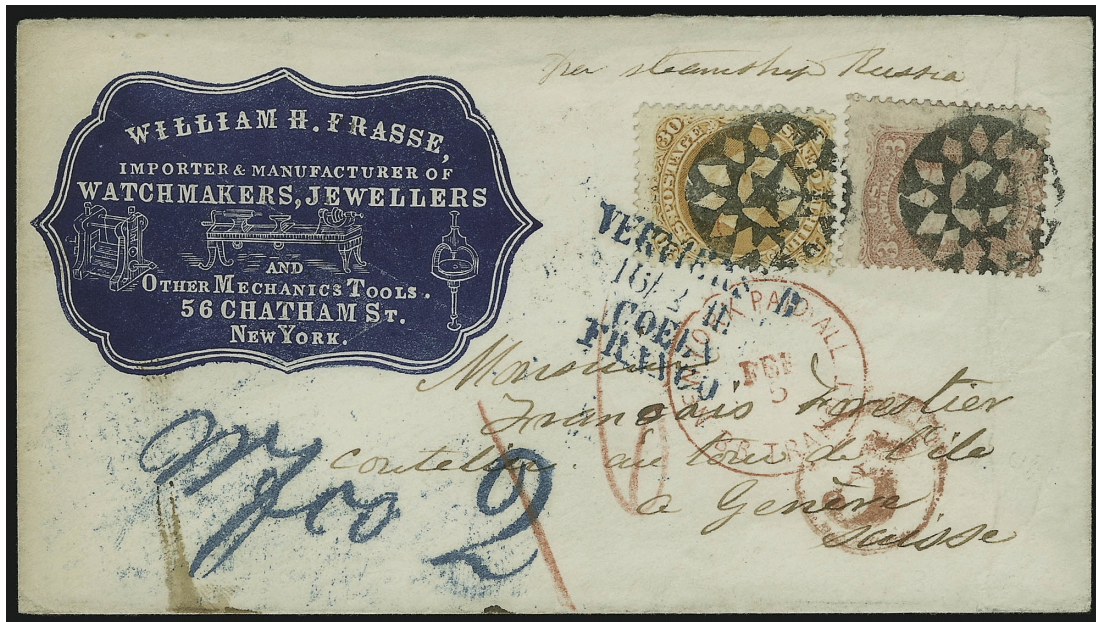 per steamship Russia
WILLIAM H. FRASSE,
IMPORTER & MANUFACTURER OF
WATCHMAKERS, JEWELLERS
AND
OTHER MECHANICS TOOLS.
56 CHATHAM ST.
NEW YORK.
10
U.S. POSTAGE
3
3
16/2
COELN
FRANCO
NEW YORK PAID ALL
FEB
5
BR. TRANSIT
Monsieur
François Forestier
coutelier au tour de l'ile
a Genève
Suisse
Wfco 2